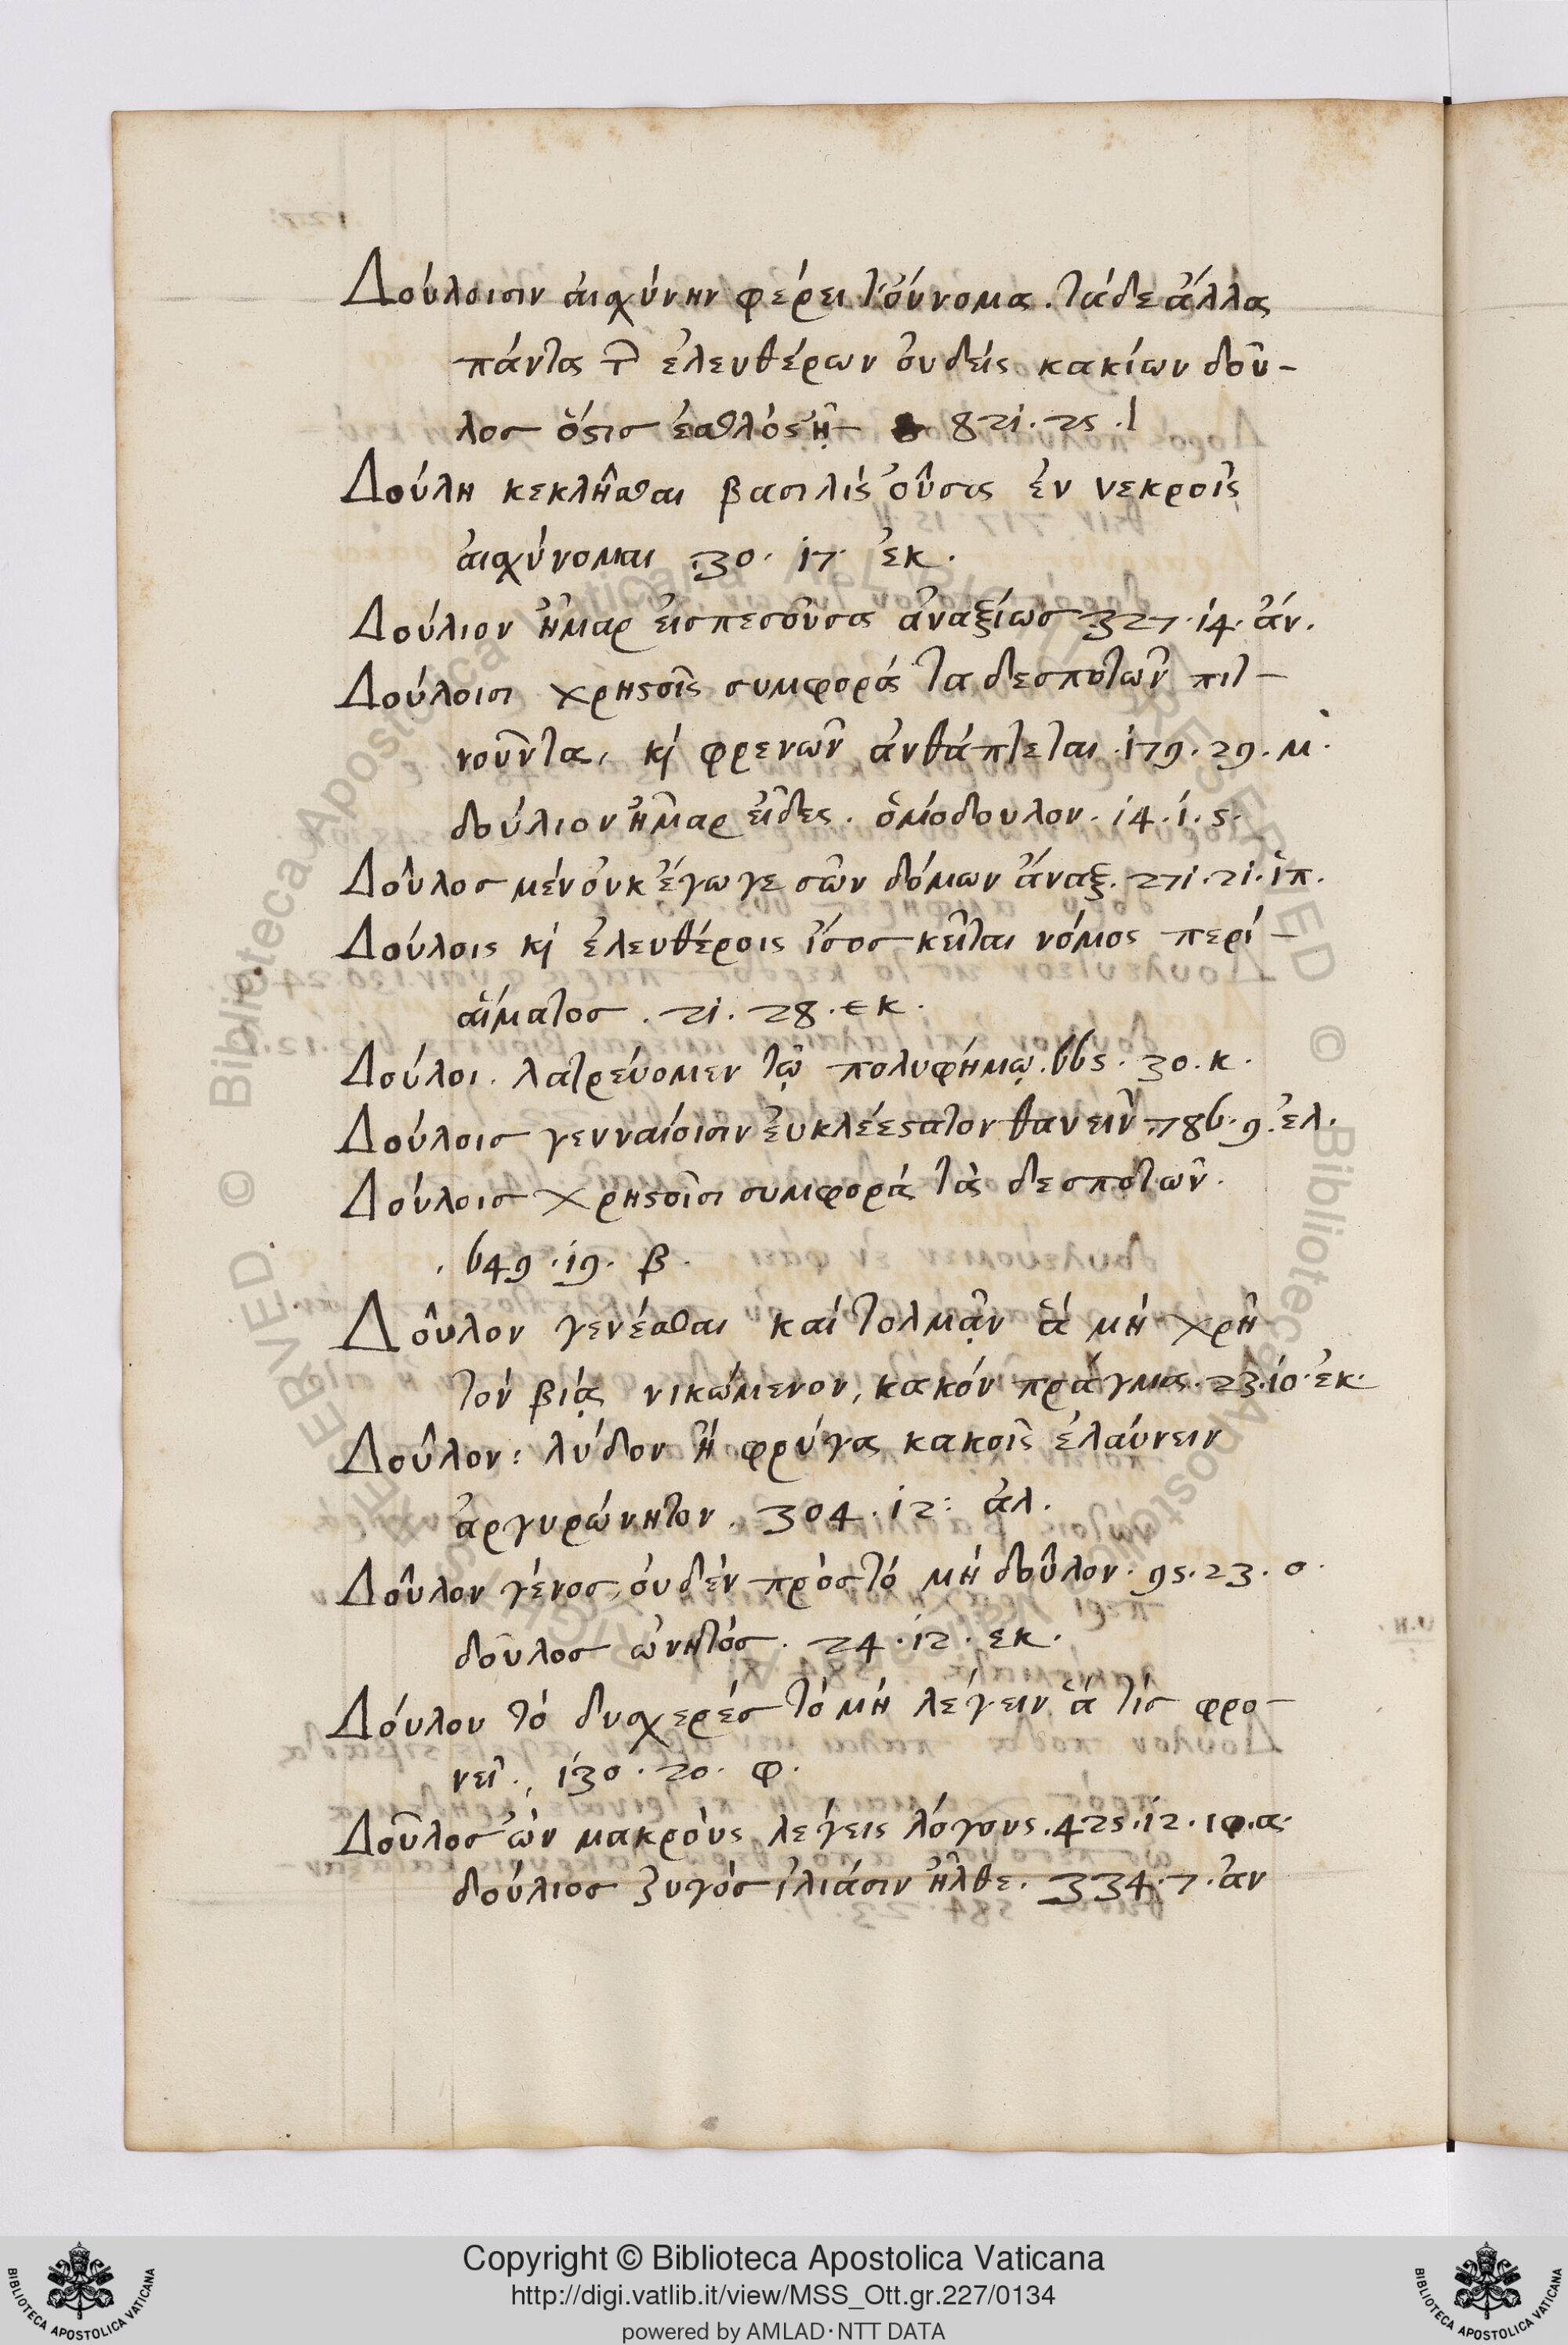 Δούλοισιν αἰσχύνην φέρει τ'ούνομα. τάδε ἄλλα
πάντα τ͂ ἐλευθέρων ὀυδεὶς κακίων δοῦ-
λοσ ὅστισ ἐσθλὸς ἦ 821. 25. ἰ
Δούλη κεκλῆσθαι βασιλὶς οὖσα ἐν νεκροῖς
ἀισχύνομαι 30. 17. ἐκ.
Δούλιον ἦμαρ ἐισπεσοῦσα ἀναξίωσ 327. 14. ἀν.
Δούλοισι χρηστοῖς συμφορὰ τα δεσποτῶν πιτ-
νοῦντα, κὶ φρενῶν ἀνθάπτεται. 179. 29. μ.
δούλιον ἦμαρ εἶδες. ὁμόδουλον. 14. 1. 5.
Δοῦλοσ μὲν ὀυκ ἔγωγε σῶν δόμων ἄναξ. 271. 21. ἰπ.
Δούλοις κὶ ἐλευθέροις ἴσοσ κεῖται νόμος περὶ-
αἵματοσ. 21. 28. εκ.
Δούλοι. λατρεύομεν τῷ πολυφήμῳ. 665. 30. κ.
Δούλοισ γενναίοισιν ἐυκλεέστατον θανεῖν 786. 9. ἐλ.
Δούλοισ χρηστοῖσι συμφορὰ τὰ δεσποτῶν.
. 649. 19. β.
Δοῦλον γενέσθαι καὶ τολμᾷν ἃ μὴ χρῆ
τὸν βίᾳ νικώμενον, κακόν πρᾶγμα. 23. 10. ἐκ.
Δοῦλον: λύδον ἢ φρύγα κακοῖς ἐλάυνειν
ἀργυρώνητον. 304. 12: ἀλ.
Δοῦλον γένοσ, ὀυδὲν πρὸσ τὸ μὴ δοῦλον. 95. 23. ο.
δοῦλοσ ὠνητόσ. 24. 12. εκ.
Δόυλου τὸ δυσχερέσ τὸ μὴ λέγειν ἅ τίσ φρο-
νεῖ., 130. 20. φ.
Δοῦλοσ ὢν μακροὺς λέγεις λόγους. 425. 12. ιφ. α.
δούλιοσ ζυγὸσ ἰλιάσιν ἦλθε. 334. 7. ἀν
RESERVED © Biblioteca Apostolica Vaticana ALL RIGHTS RESERVED © Biblioteca Apostolica Vaticana ALL RIGHTS
Copyright © Biblioteca Apostolica Vaticana
http://digi.vatlib.it/view/MSS_Ott.gr.227/0134
powered by AMLAD·NTT DATA
BIBLIOTECA APOSTOLICA VATICANA
BIBLIOTECA APOSTOLICA VATICANA